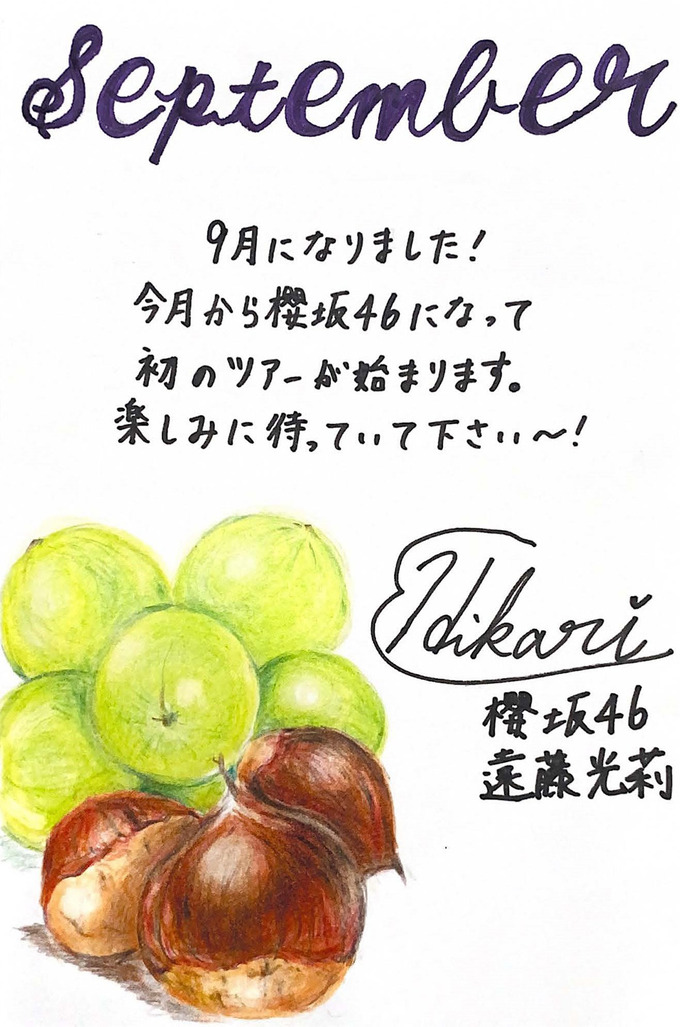 September
9月になりました！
今月から櫻坂46になって
初のツアーが始まります。
楽しみに待っていて下さい〜！
Hikari
櫻坂46
遠藤光莉